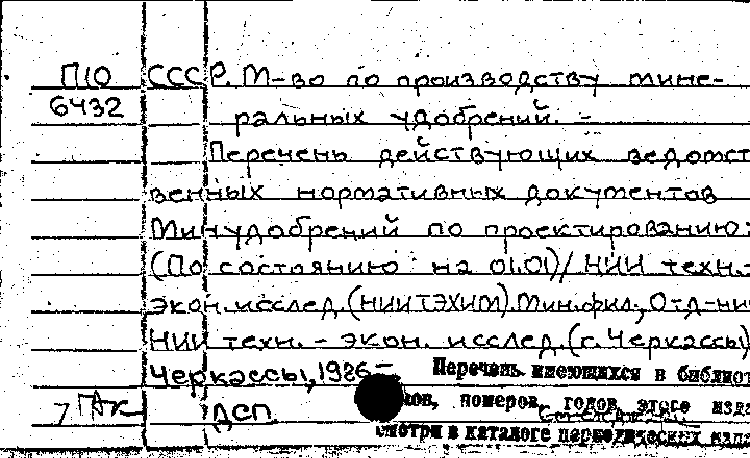 П10 СССР. М-во по производству мине-
6432 ральных удобрений. -
Перечень действующих ведомст
венных нормативных документов
Минудобрений по проектированию:
(По состоянию на 01.01)/ НИИ техн.-
экон. исслед. (НИИТЭХИМ). Мин. фил., Отд-ни
НИИ техн. - экон. исслед. (г. Черкассы)
Черкассы, 1986 - Перечень имеющихся в библиот
ДСП ков, номеров, годов этого изда
смотри в каталоге периодических изда